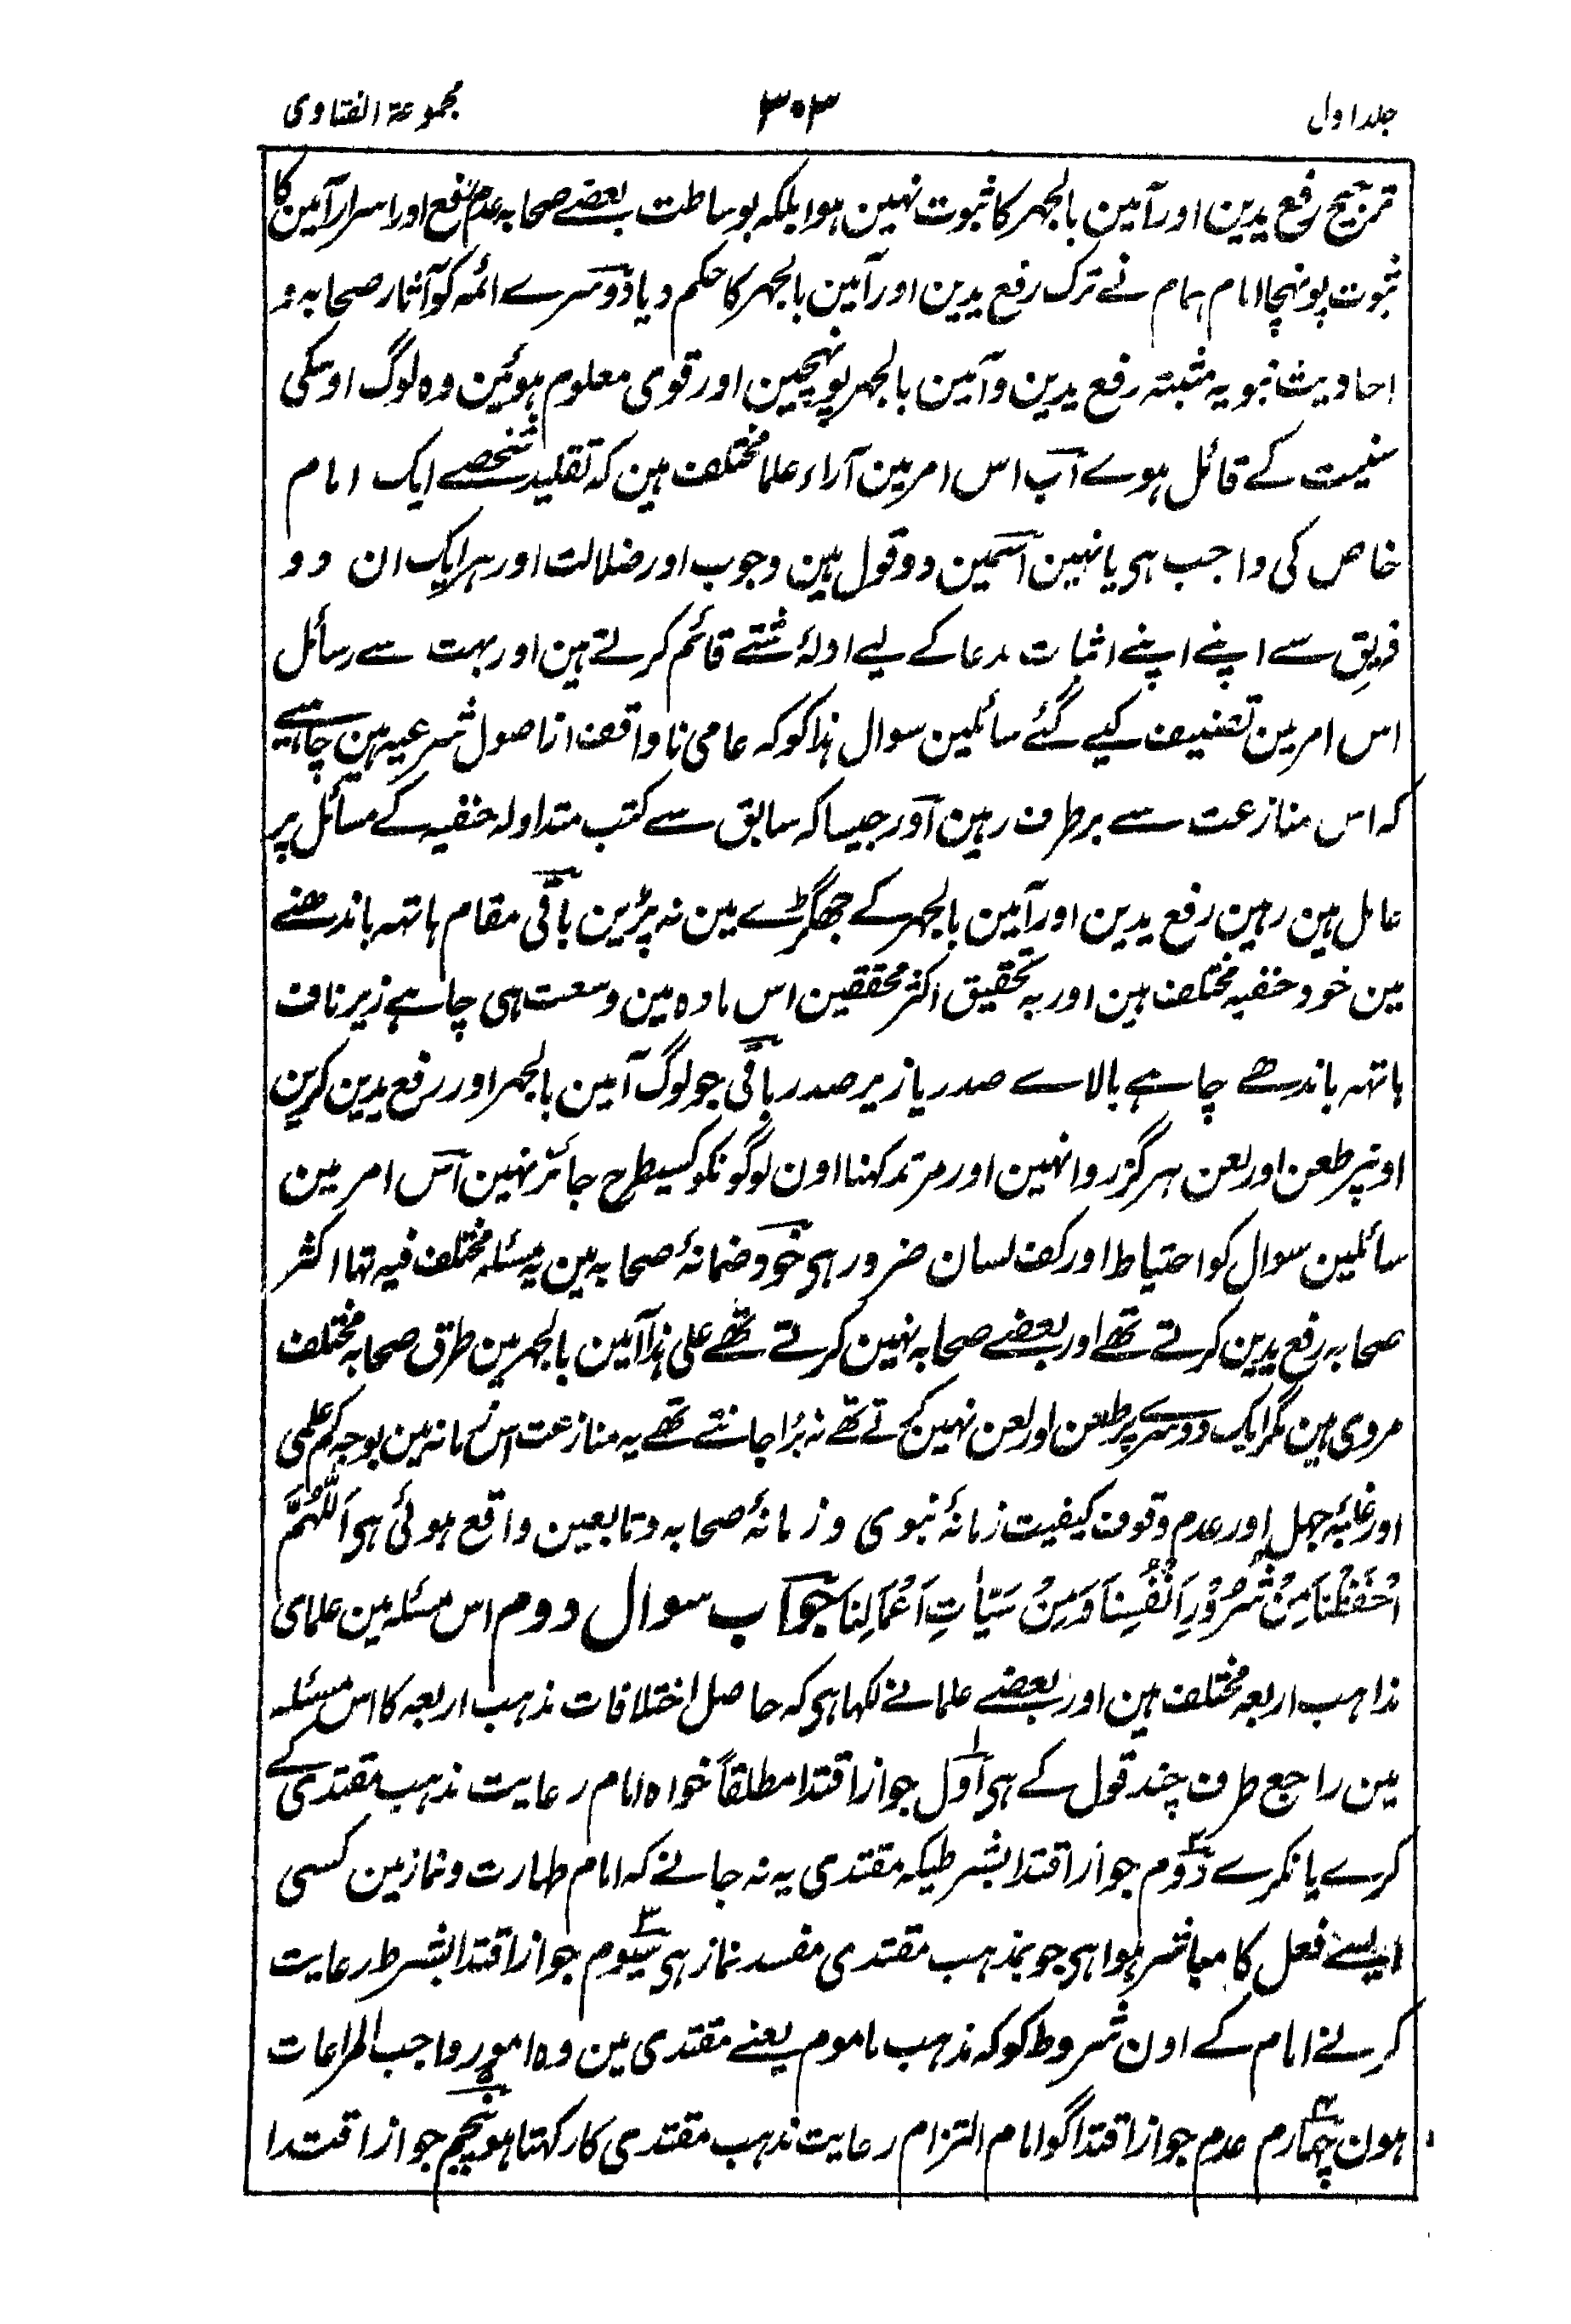 جلد اول ۳۰۳ مجموعۃ الفتاوی
ترجیح رفع یدین اور آمین بالجہر کا ثبوت نہین ہوا بلکہ بوساطت بعضے صحابہ عدم رفع اور اسرار آمین کا
ثبوت پونہچا امام ہمام نے ترک رفع یدین اور آمین بالجہر کا حکم دیا دوسرے ائمہ کو آثار صحابہ و
احادیث نبویہ مثبتہ رفع یدین و آمین بالجہر پونہچین اور قوی معلوم ہوئین وہ لوگ اوسکی
سنیت کے قائل ہوے اب اس امر مین آراء علما مختلف ہین کہ تقلید شخصے ایک امام
خاص کی واجب ہی یا نہین اسمین دو قول ہین وجوب اور ضلالت اور ہر ایک ان دو
فریق سے اپنے اپنے اثبات مدعا کے لیے ادلۂ شتے قائم کرتے ہین اور بہت سے رسائل
اس امر مین تصنیف کیے گئے سائلین سوال ہذا کو کہ عامی ناواقف از اصول شرعیہ ہین چاہیے
کہ اس منازعت سے برطرف رہین اور جیسا کہ سابق سے کتب متداولہ حنفیہ کے مسائل پر
عامل ہین رہین رفع یدین اور آمین بالجہر کے جھگڑے مین نہ پڑین باقی مقام ہاتہہ باندھنے
مین خود حنفیہ مختلف ہین اور بہ تحقیق اکثر محققین اس مادہ مین وسعت ہی چاہے زیر ناف
ہاتہہ باندھے چاہے بالاے صدر یا زیر صدر باقی جو لوگ آمین بالجہر اور رفع یدین کرین
اونپر طعن اور لعن ہرگز روا نہین اور مرتد کہنا اون لوگونکو کسیطرح جائز نہین اس امر مین
سائلین سوال کو احتیاط اور کف لسان ضرور ہی خود ضمانۂ صحابہ مین یہ مسئلہ مختلف فیہ تہا اکثر
صحابہ رفع یدین کرتے تھے اور بعضے صحابہ نہین کرتے تھے علی ہذا آمین بالجہر مین طرق صحابہ مختلف
مروی ہین مگر ایک دوسرے پر طعن اور لعن نہین کرتے تھے نہ بُرا جانتے تھے یہ منازعت اس زمانہ مین بوجہ کم علمی
اور غلبۂ جہل اور عدم وقوف کیفیت زمانۂ نبوی و زمانۂ صحابہ و تابعین واقع ہوئی ہی اَللّٰہُمَّ
احْفَظْنَا مِنْ شُرُوْرِ اَنْفُسِنَا وَمِنْ سَیِّاٰتِ اَعْمَالِنَا جواب سوال دوم اس مسئلہ مین علمای
مذاہب اربعہ مختلف ہین اور بعضے علمانے لکہا ہی کہ حاصل اختلافات مذہب اربعہ کا اس مسئلہ
مین راجع طرف چند قول کے ہی اول جواز اقتدا مطلقاً خواہ امام رعایت مذہب مقتدی کے
کرے یا نکرے دوم جواز اقتدا بشرطیکہ مقتدی یہ نہ جانے کہ امام طہارت و نماز مین کسی
ایسے فعل کا مباشر ہوا ہی جو بمذہب مقتدی مفسد نماز ہی سیوم جواز اقتدا بشرط رعایت
کرنے امام کے اون شروط کو کہ مذہب ماموم یعنے مقتدی مین وہ امور واجب المراعات
ہون چہارم عدم جواز اقتدا گو امام التزام رعایت مذہب مقتدی کا رکہتا ہو پنجم جواز اقتدا